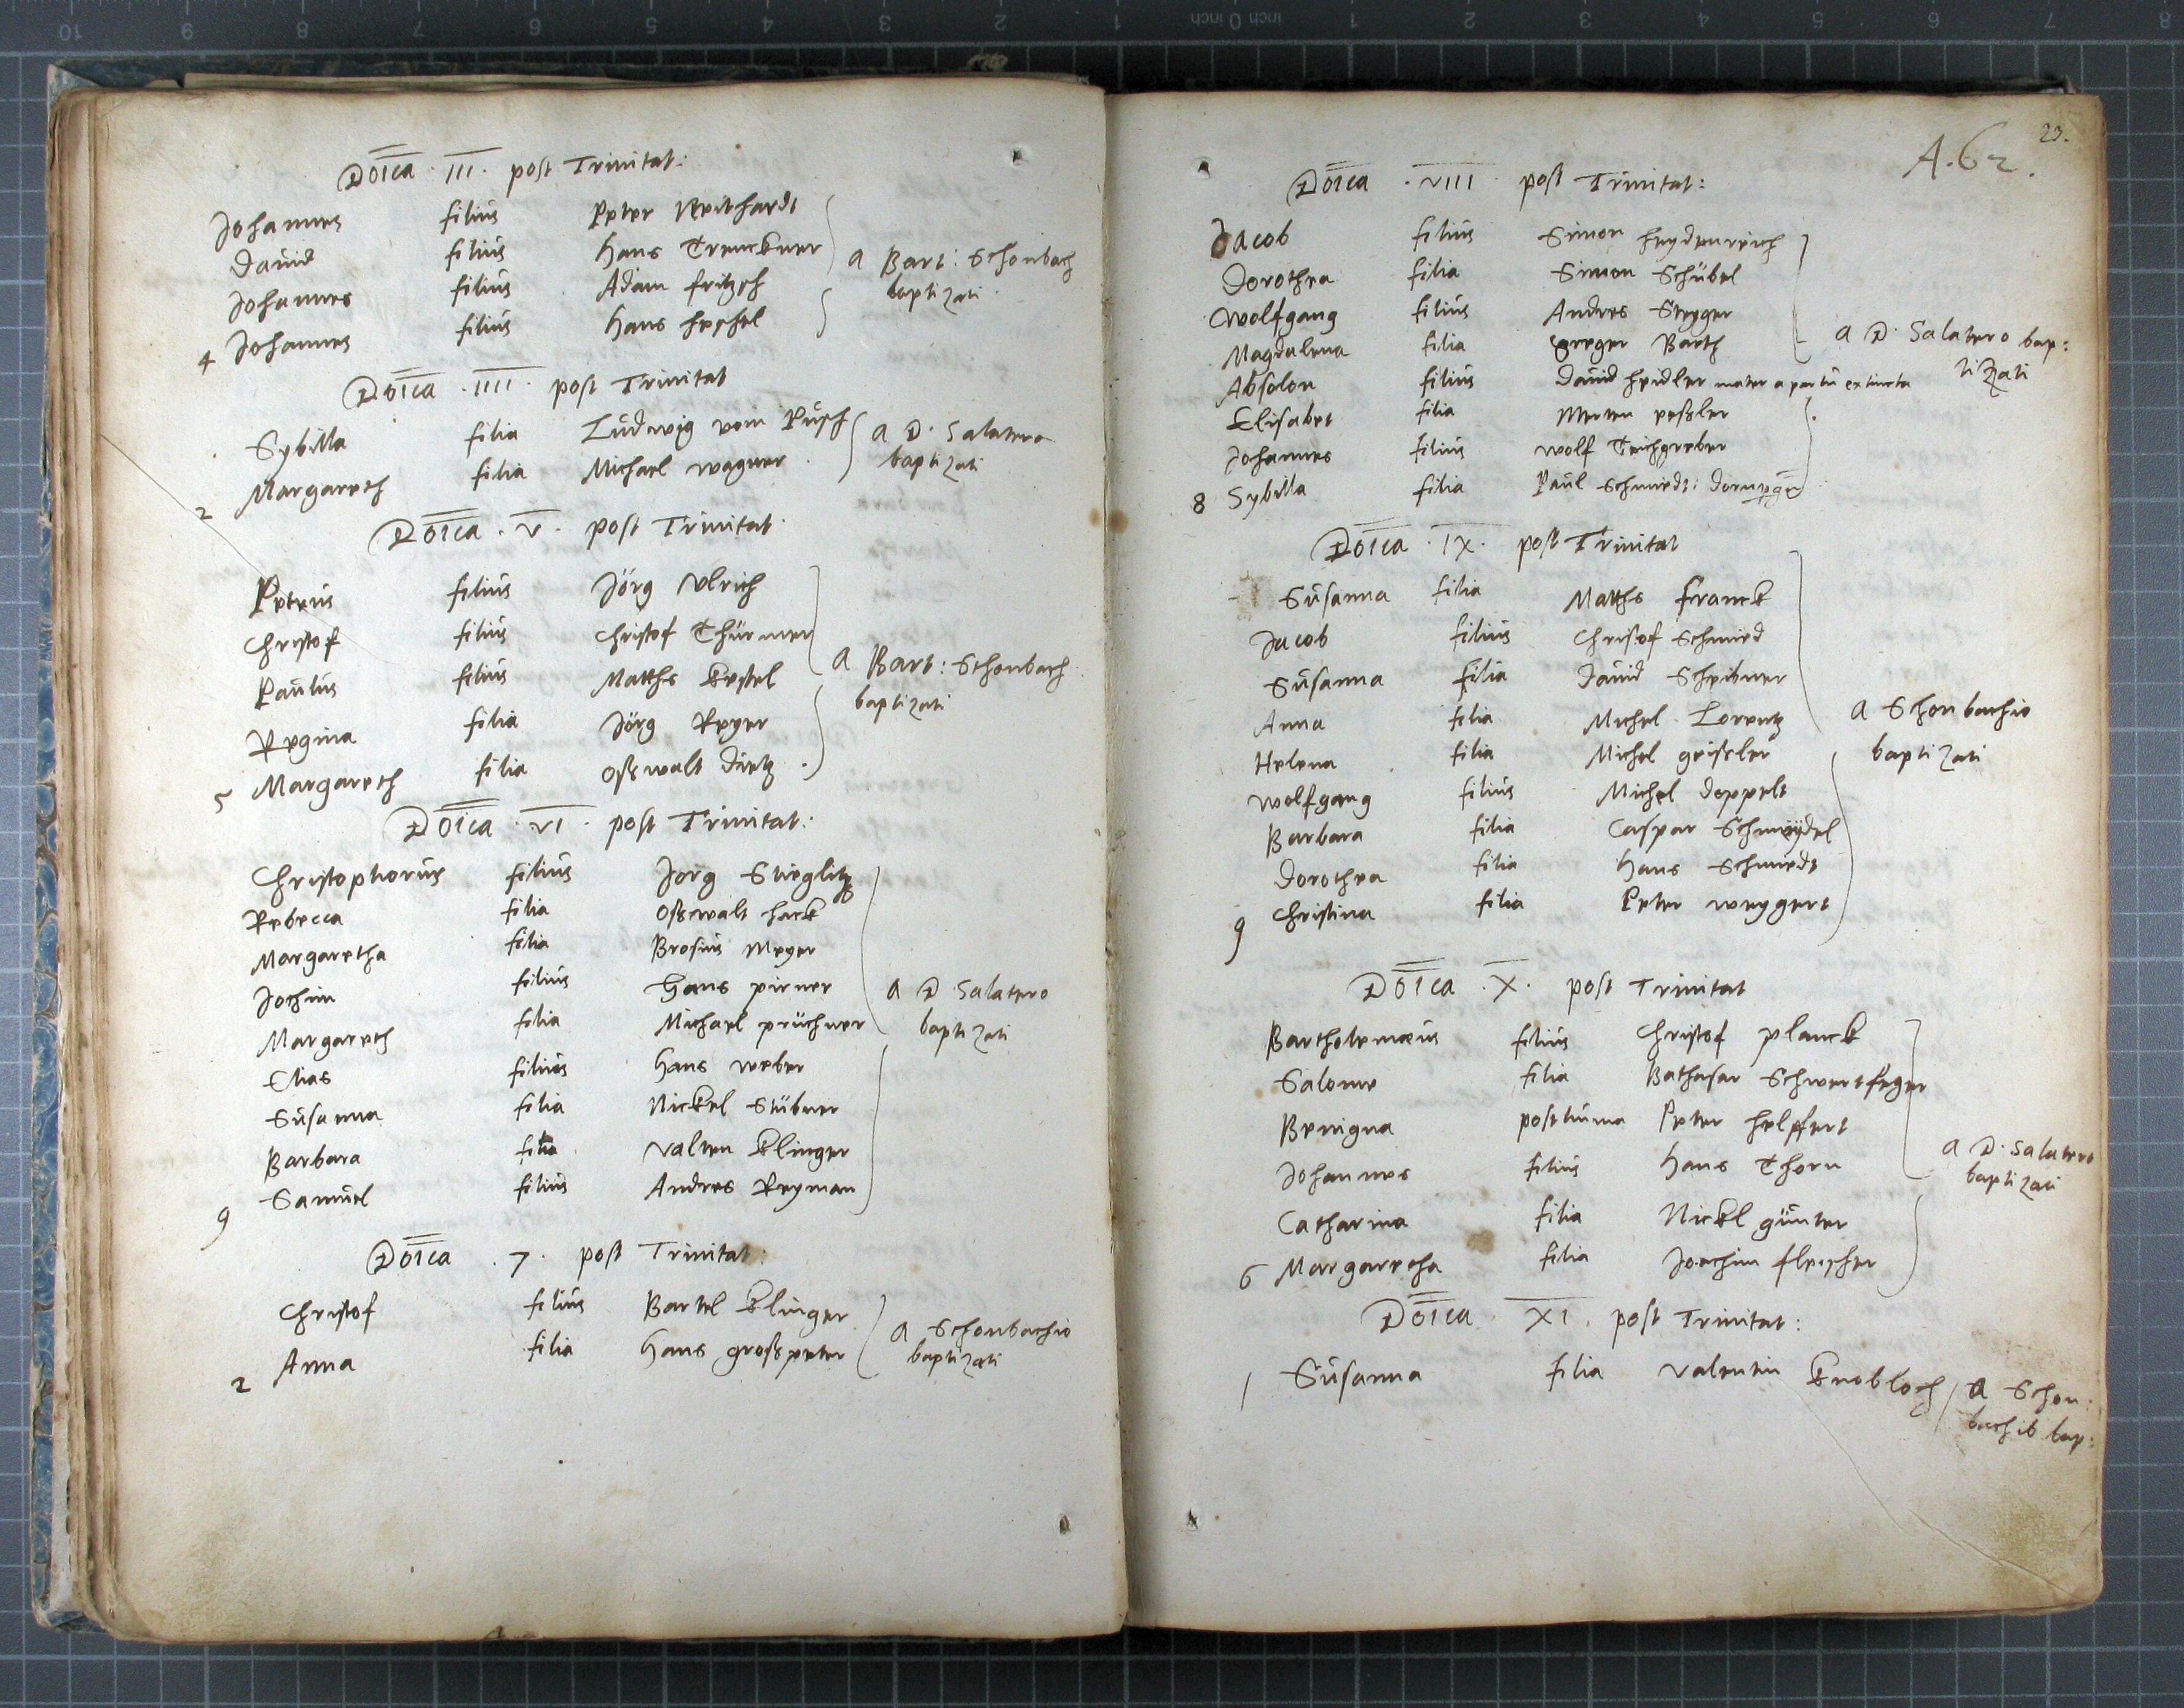 Do͞ica · III · post Trinitat:
Johannes filius Peter Neithardt
Dauid filius Hans Trenckner
Johannes filius Adam Fritzsch
4 Johannes filius Hans Heschel
a Bart: Schonbach
baptizati
Do͞ica · IIII · post Trinitat
Sybilla filia Ludwig vom Pusch
2 Margareth filia Michael Wagner
a D. Salatero
baptizati
Do͞ica · V · post Trinitat
Petrus filius Jörg Vlrich
Christof filius Christof Thürmer
Paulus filius Matths Kestel
Regina filia Jörg Reyer
5 Margareth filia Osswalt Dietz
a Bart: Schonbach
baptizati
Do͞ica · VI · post Trinitat:
Christophorus filius Jorg Stieglitz
Rebecca filia Osswalt Hack
Margaretha filia Brosius Meyer
Jochim filius Hans Pirner
Margareth filia Michael Prüchner
Elias filius Hans Weber
Susanna filia Nickel Stübner
Barbara filia Valten Klinger
9 Samuel filius Andres Reyman
a D. Salatero
baptizati
Do͞ica · 7 · post Trinitat:
Christof filius Bartel Klinger
2 Anna filia Hans Grosspeter
a Schonbachio
baptizati
23.
A. 62.
Do͞ica · VIII · post Trinitat:
Jacob filius Simon Heydenreich
Dorothea filia Simon Schübel
Wolfgang filius Andres Steyger
Magdalena filia Greger Barth
Absolon filius Dauid Heidler mater a partu extincta
Elisabet filia Merten Pessler
Johannes filius Wolf Teichgreber
8 Sybilla filia Paul Schmiedt:
a D. Salatero bap:
tizati
Do͞ica · IX · post Trinitat
Susanna filia Matths Franck
Jacob filius Christof Schmied
Susanna filia Dauid Scheibner
Anna filia Michel Lorentz
Helena filia Michel Geissler
Wolfgang filius Michel Doppelt
Barbara filia Caspar Schmeydel
Dorothea filia Hans Schmiedt
9 Christina filia Peter Weygert
a Schonbachio
baptizati
Do͞ica · X · post Trinitat
Bartholemæus filius Christof Planck
Salome filia Bathasar Schwertfeger
Benigna posthuma Peter Helpfert
Johannes filius Hans Thorn
Catharina filia Nickl Günter
6 Margaretha filia Joachim Fleischer
a D. Salatero
baptizati
Do͞ica · XI · post Trinitat:
1 Susanna filia Valentin Knobloch
a Schon:
bachio bap: